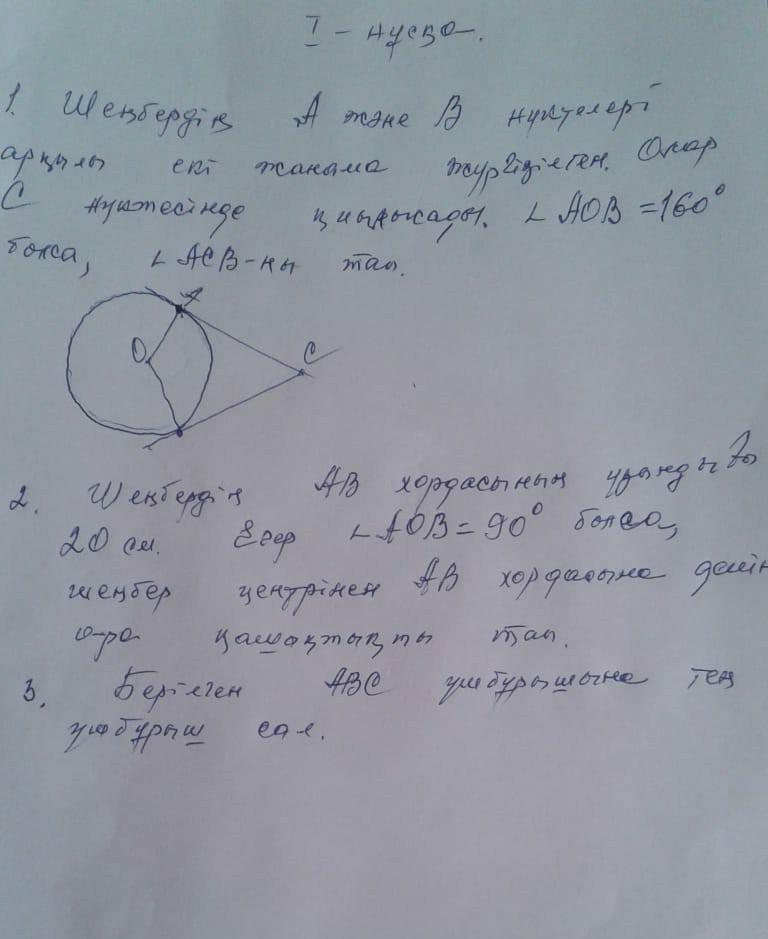 I - нұсқа.
1. Шеңбердің А және В нүктелері
арқылы екі жанама жүргізілген. Олар
С нүктесінде қиылысады. ∠АОВ = 160°
болса, ∠АСВ-ны тап.
А
О
С
2. Шеңбердің АВ хордасының ұзындығы
20 см. Егер ∠АОВ = 90° болса,
шеңбер центрінен АВ хордасына дейін
қашақтықты тап.
3. Берілген АВС үшбұрышына тең
үшбұрыш сал.